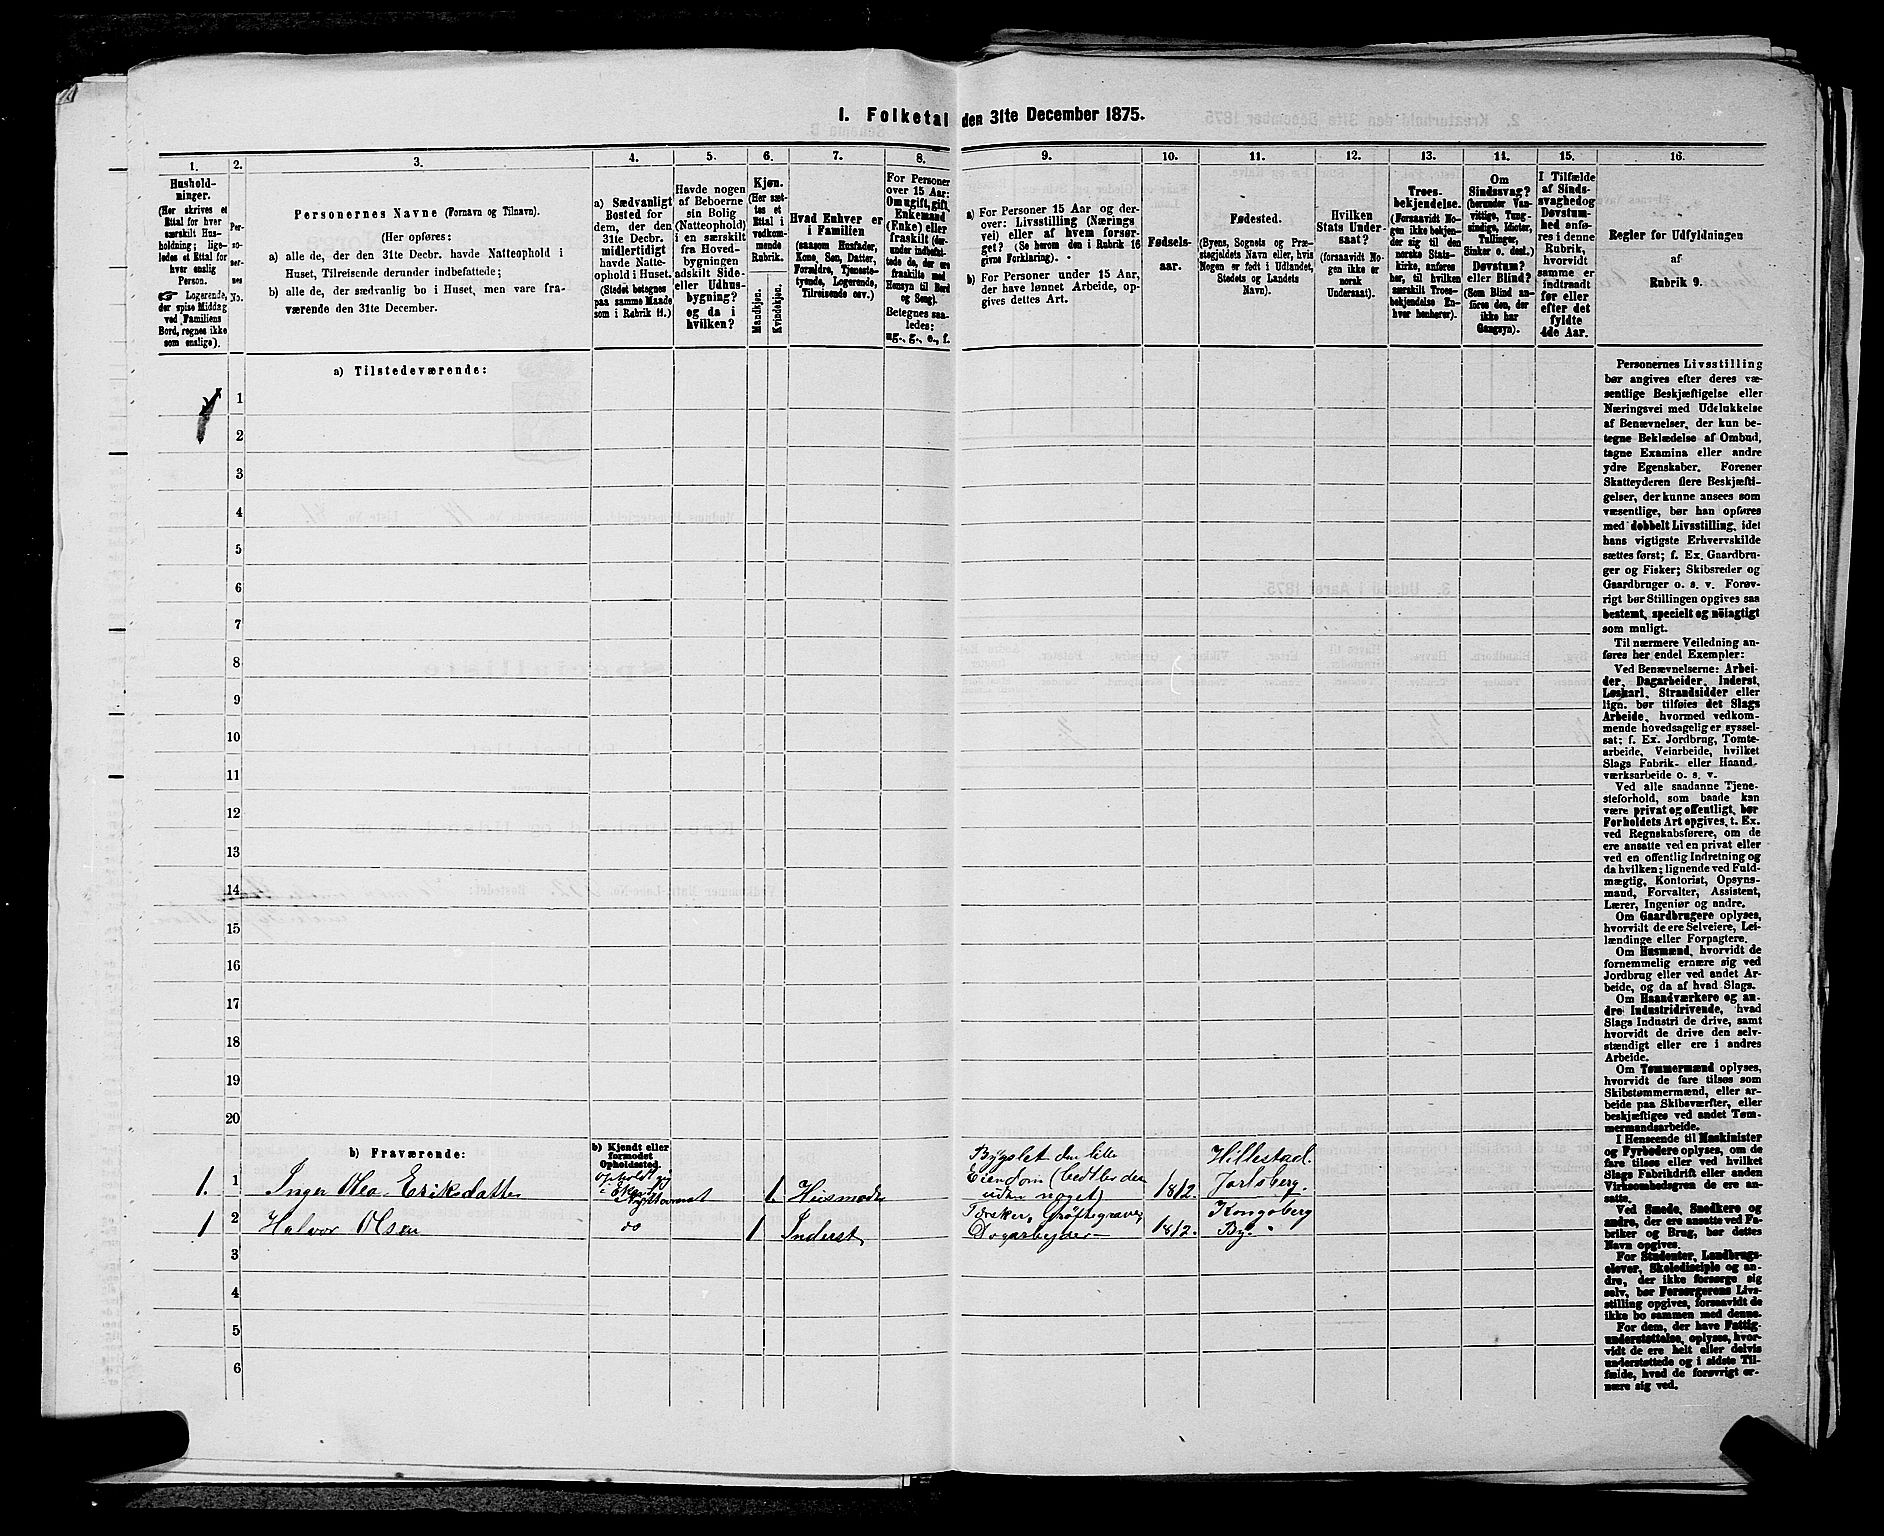 1. Folketal den 31te December 1875.
1.
Hushold-
ninger.
(Her skrives et
Ettal for hver
særskilt Hus-
holdning; lige-
ledes et Ettal for
hver enslig
Person.
Logerende,
der spise Middag
ved Familiens
Bord, regnes ikke
som enslige).
2.
Per-
so-
ner-
nes
No.
3.
Personernes Navne (Fornavn og Tilnavn).
(Her opføres:
a) alle de, der den 31te Decbr. havde Natteophold i
Huset, Tilreisende derunder indbefattede;
b) alle de, der sædvanlig bo i Huset, men vare fra-
værende den 31te December.
4.
a) Sædvanligt
Bosted for
dem, der den
31te Decbr.
midlertidigt
havde Natte-
ophold i Huset.
(Stedet betegnes
paa samme Maade
som i Rubrik 11.)
5.
Havde nogen
af Beboerne
sin Bolig
(Natteophold)
i en særskilt
fra Hoved-
bygningen
adskilt Side-
eller Udhus-
bygning?
og da i
hvilken?
6.
Kjøn.
(Her sæt-
tes et
Ettal i
vedkom-
mende
Rubrik.
Mandkjøn.
Kvindekjøn.
7.
Hvad Enhver er
i Familien
(saasom Husfader,
Kone, Søn, Datter,
Forældre, Tjeneste-
tyende, Logerende,
Tilreisende osv.)
8.
For Personer
over 15 Aar:
Om ugift, gift,
Enkemand
(Enke) eller
fraskilt (der-
under indbefat-
tede de, der ere
fraskilte med
Hensyn til Bord
og Seng).
Betegnes saa-
ledes:
ug., g., e., f.
9.
a) For Personer 15 Aar og der-
over: Livsstilling (Nærings-
vei) eller af hvem forsør-
get? (Se herom den i Rubrik 16
givne Forklaring).
b) For Personer under 15 Aar,
der have lønnet Arbeide, op-
gives dettes Art.
10.
Fødsels-
aar.
11.
Fødested.
(Byens, Sognets og Præ-
stegjeldets Navn eller, hvis
Nogen er født i Udlandet,
Stedets og Landets
Navn).
12.
Hvilken
Stats Under-
saat?
(forsaavidt No-
gen ikke er
norsk
Undersaat).
13.
Troes-
bekjendelse.
(Forsaavidt No-
gen ikke bekjen-
der sig til den
norske Stats-
kirke, anføres
her, til hvilken
særskilt Troes-
bekjendelse En-
hver henhører).
14.
Om
Sindssvag?
(herunder Van-
vittige, Tung-
sindige, Idioter,
Tullinger,
Sinker o. desl.)
Døvstum?
eller Blind?
(Som Blind an-
føres den, der
ikke har
Gangsyn).
15.
I Tilfælde
af Sinds-
svaghed og
Døvstum-
hed anfø-
res i denne
Rubrik,
hvorvidt
samme er
indtraadt
før eller
efter det
fyldte
4de Aar.
16.
Regler for Udfyldningen
af
Rubrik 9.
a) Tilstedeværende:
1
2
3
4
5
6
7
8
9
10
11
12
13
14
15
16
17
18
19
20
b) Fraværende:
b) Kjendt eller
formodet
Opholdssted.
1. 1 Inger Olea Eriksdatter 1. Husmoder Bygslet den lille Eiendom uden noget) 1812. Hillestad Jarlsberg.
1 2 Halvor Olsen do 1 Inderst Dagarbejder 1812. Kongsberg By.
3
4
5
6
Personernes Livsstilling
bør angives efter deres væ-
sentlige Beskjæftigelse eller
Næringsvei med Udelukkelse
af Benævnelser, der kun be-
tegne Beklædelse af Ombud,
tagne Examina eller andre
ydre Egenskaber. Forener
Skatteyderen flere Beskjæfti-
gelser, der kunne ansees som
væsentlige, bør han opføres
med dobbelt Livsstilling, idet
hans vigtigste Erhvervskilde
sættes først; f. Ex. Gaardbru-
ger og Fisker; Skibsreder og
Gaardbruger o. s. v. Forøv-
rigt bør Stillingen opgives saa
bestemt, specielt og nøiagtigt
som muligt.
Til nærmere Veiledning an-
føres her endel Exempler:
Ved Benævnelserne: Arbei-
der, Dagarbeider, Inderst,
Løskarl, Strandsidder eller
lign. bør tilføies det Slags
Arbeide, hvormed vedkom-
mende hovedsagelig er syssel-
sat; f. Ex. Jordbrug, Tomte-
arbeide, Veiarbeide, hvilket
Slags Fabrik- eller Haand-
værksarbeide o. s. v.
Ved alle saadanne Tjene-
steforhold, som baade kan
være privat og offentligt, bør
Forholdets Art opgives, t. Ex.
ved Regnskabsførere, om de
ere ansatte ved en privat eller
ved en offentlig Indretning og
da hvilken; lignende ved Fuld-
mægtig, Kontorist, Opsyns-
mand, Forvalter, Assistent,
Lærer, Ingeniør og andre.
Om Gaardbrugere oplyses,
hvorvidt de ere Selveiere, Lei-
lændinge eller Forpagtere.
Om Husmænd, hvorvidt de
fornemmelig ernære sig ved
Jordbrug eller ved andet Ar-
beide, og da af hvad Slags.
Om Haandværkere og an-
dre Industridrivende, hvad
Slags Industri de drive, samt
hvorvidt de drive den selv-
stændigt eller ere i andres
Arbeide.
Om Tømmermænd oplyses,
hvorvidt de fare tilsøs som
Skibstømmermænd, eller ar-
beide paa Skibsværfter, eller
beskjæftiges ved andet Tøm-
mermandsarbeide.
I Henseende til Maskinister
og Fyrbødere oplyses, om de
fare tilsøs eller ved hvilket
Slags Fabrikdrift eller anden
Virksomhedsgren de ere an-
satte.
Ved Smede, Snedkere og
andre, der ere ansatte ved Fa-
briker og Brug, bør dettes
Navn opgives.
For Studenter, Landbrugs-
elever, Skoledisciple og an-
dre, der ikke forsørge sig
selv, bør Forsørgerens Livs-
stilling opgives, forsaavidt de
ikke bo sammen med denne.
For dem, der have Fattig-
understøttelse, oplyses, hvor-
vidt de ere helt eller delvis
understøttede og i sidste Til-
fælde, hvad de forøvrigt er-
nære sig ved.